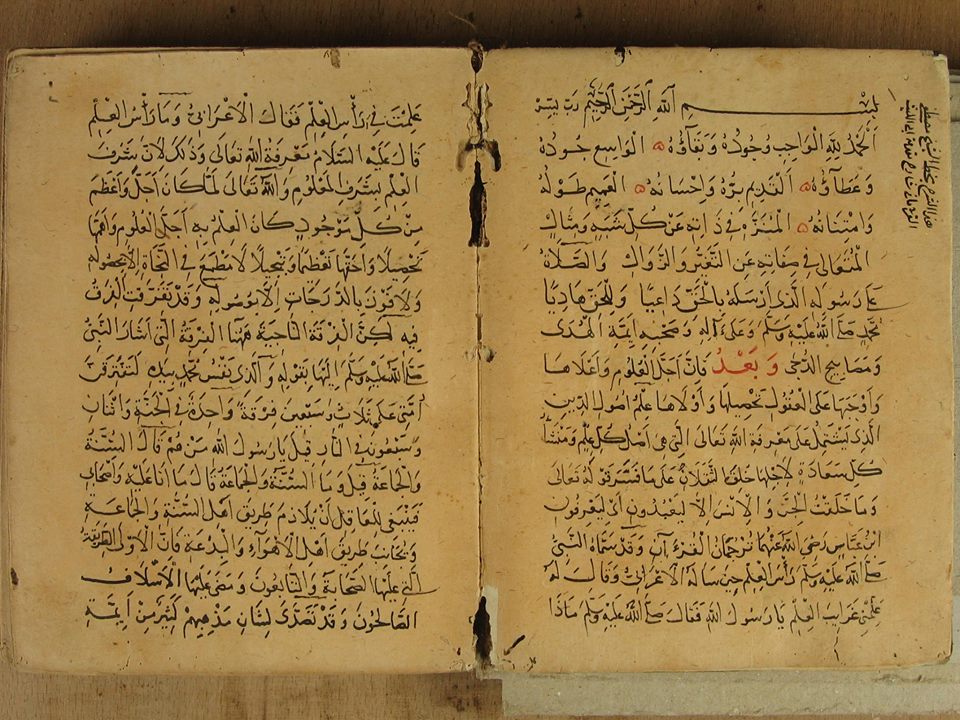 بسم الله الرحمن الرحيم رب يسر
الحمد لله الواجب وجوده وبقاؤه الواسع جوده
وعطاؤه القديم بره واحسانه العميم طوله
وامتنانه المنزه في ذاته عن كل شبه ومثال
المتعالى في صفاته عن التغير والزوال والصلاة
على رسوله الذي ارسله بالحق داعيا وللخلق هاديا
محمد صلى الله عليه وسلم وعلى آله وصحبه ايمة الهدى
ومصابيح الدجى وبعد فان اجل العلوم واعلاها
واوجبها على العقول تحصيلها واولاها علم اصول الدين
الذي يشتمل على معرفة الله تعالى التي هي اصل كل علم ومنشأ
كل سعادة لاجلها خلق الثقلان على ما فسر قوله تعالى
وما خلقت الجن والانس الا ليعبدون اى ليعرفون
ابن عباس رضى الله عنهما ترجمان القرءآن وقد سماه النبى
صلى الله عليه وسلم رأس العلم حين سأله الاعرابى وقال له
علمنى غرايب العلم يا رسول الله فقال صلى الله عليه وسلم ماذا
علمت في رأس العلم فقال الاعرابى وما رأس العلم
قال عليه السلام معرفة الله تعالى وذلك لان شرف
العلم بشرف المعلوم والله تعالى لما كان اجل واعظم
من كل موجود كان العلم به اجل العلوم واهمها
تحصيلا واحقها تعظيما وتبجيلا لا مطمع في النجاة الا بحصوله
ولا فوز بالدرجات الا بوصوله وقد تفرقت الفرق
فيه لكن الفرقة الناجية منها الفرقة التى اشار النبى
صلى الله عليه وسلم اليها بقوله والذى نفس محمد بيده لتفترقن
امتى على ثلاث وسبعين فرقة واحدة في الجنة واثنان
وسبعون في النار قيل يا رسول الله من هم قال السنة
والجماعة قيل وما السنة والجماعة قال ما انا عليه واصحابى
فينبغى للعاقل أن يلازم طريق اهل السنة والجماعة
ويجانب طريق اهل الاهواء والبدعة فان الاولى الطريقة
التى عليها الصحابة والتابعون ومضى عليها الاسلاف
الصالحون وقد تصدى لبيان مذهبهم كثير من ايمة